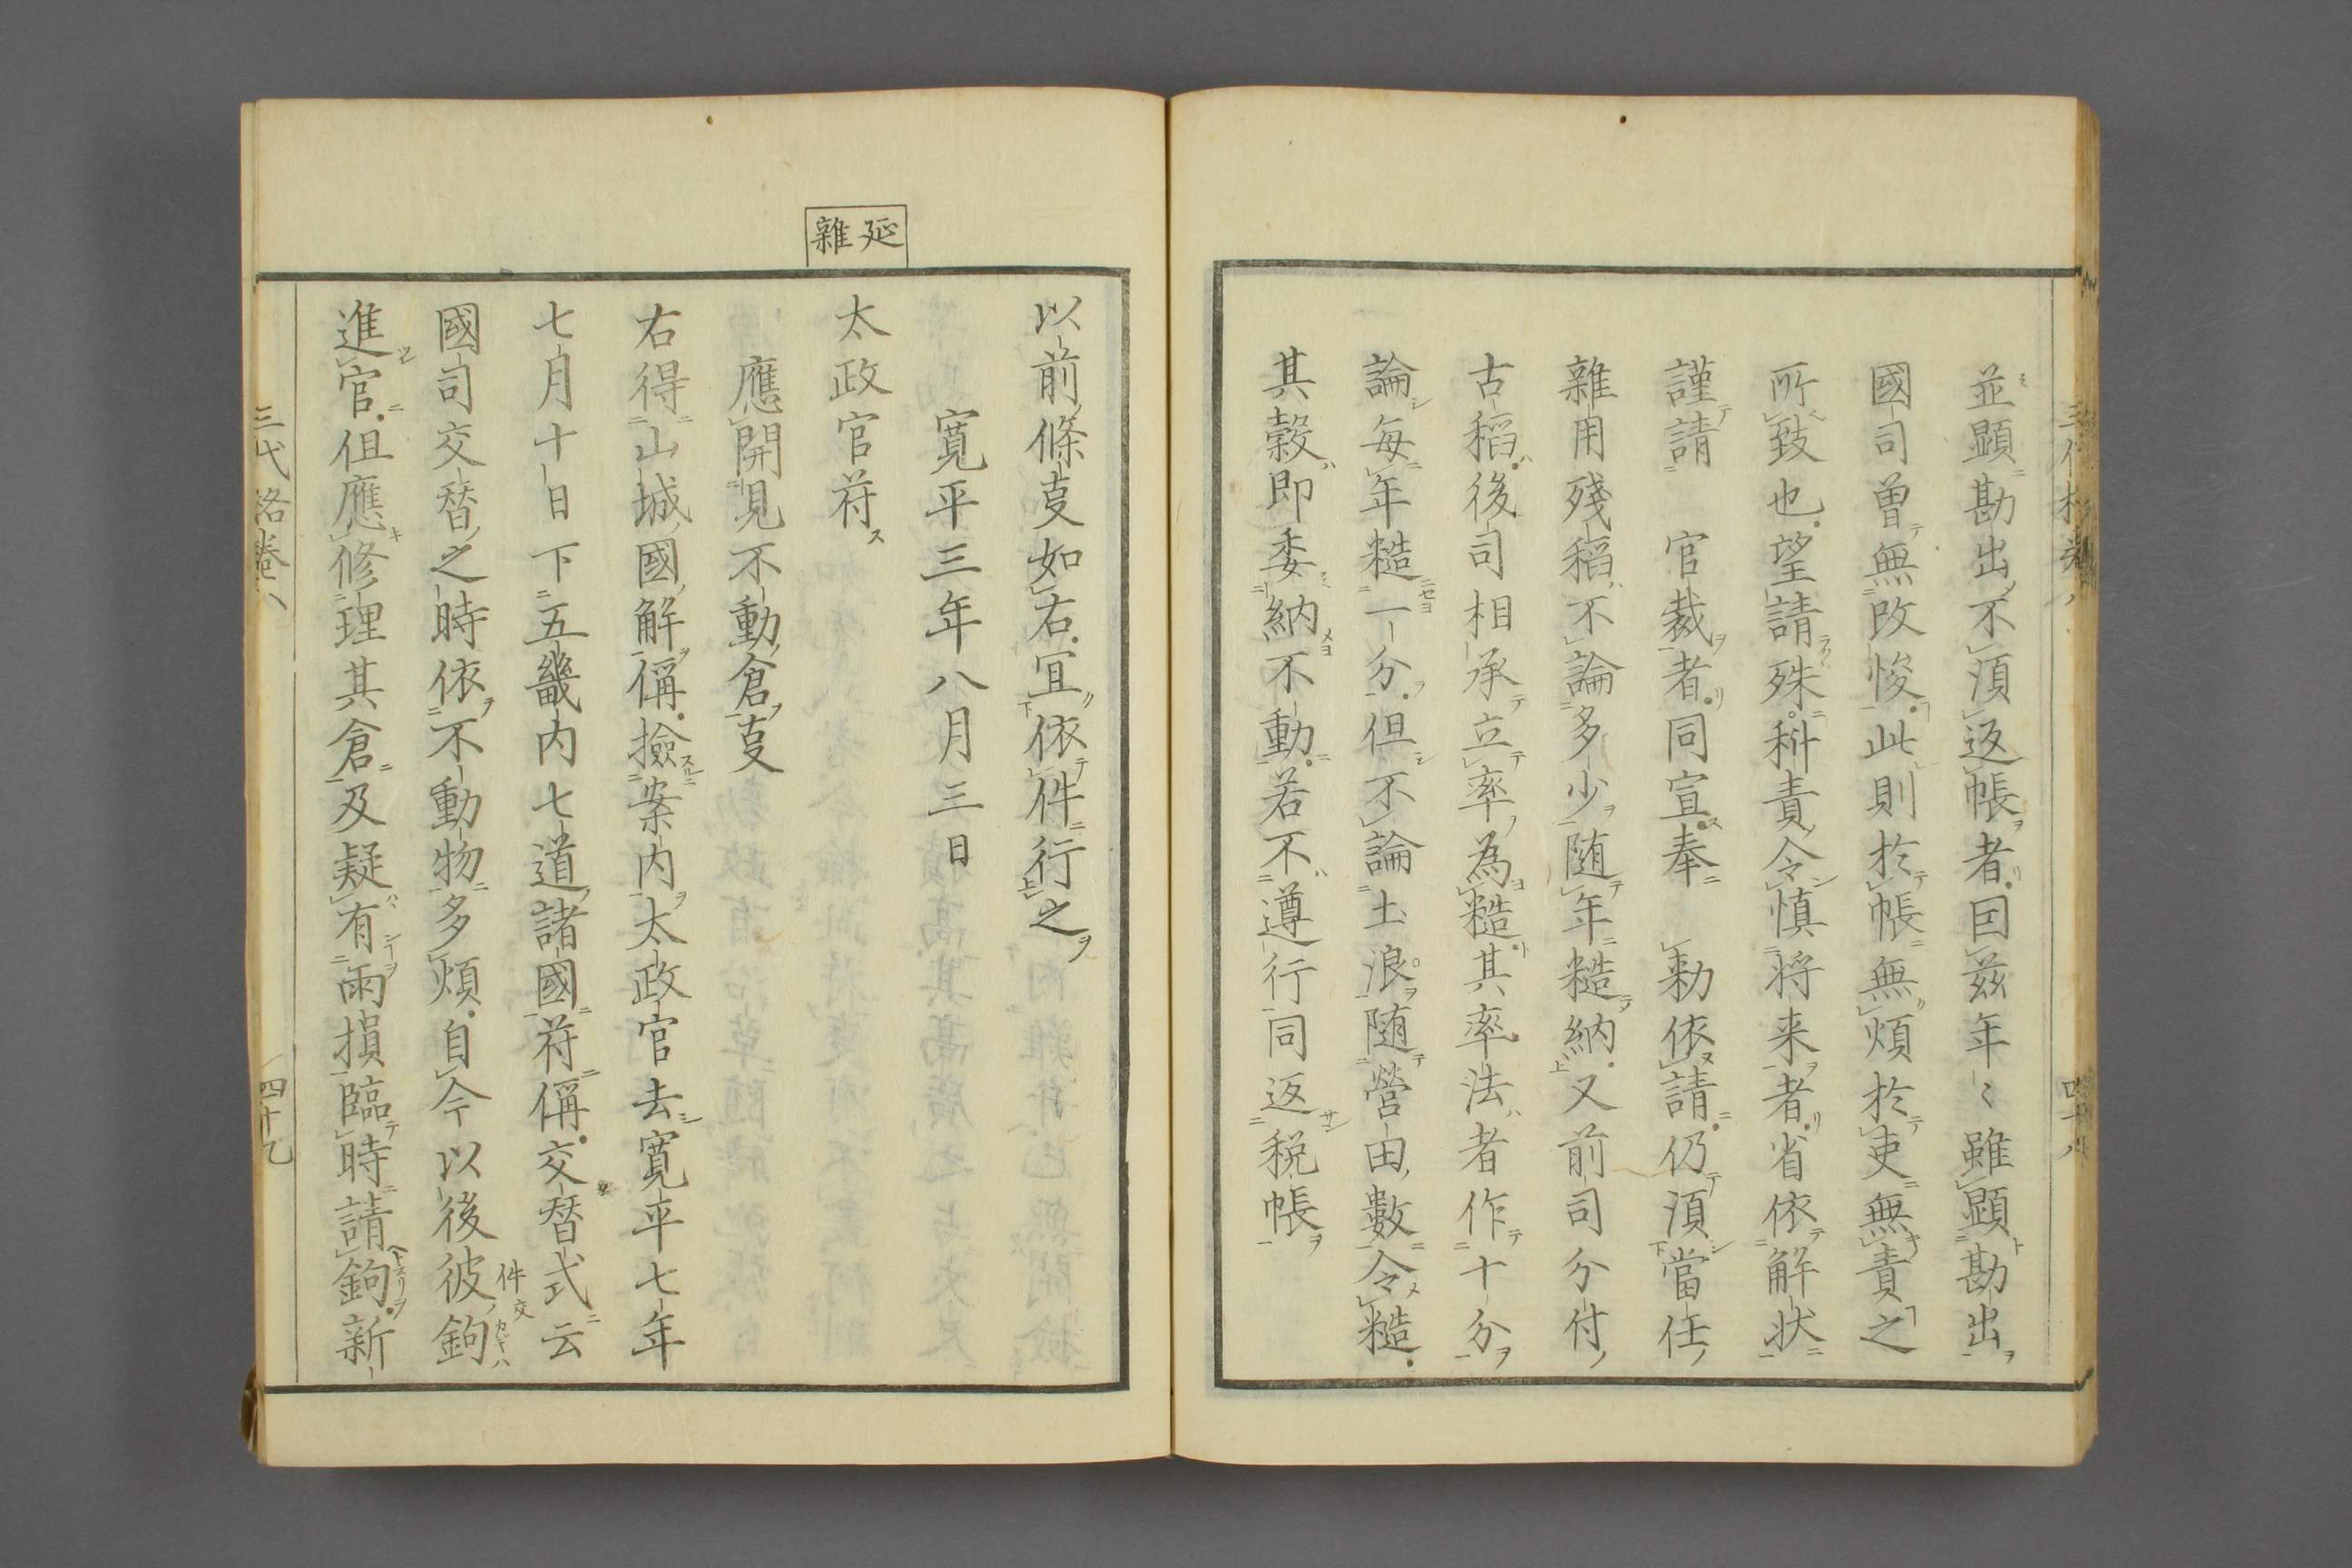 並顕勘出不湏返帳者囙兹年〻雖顕勘出
國司曽無改悛此則於帳無煩於吏無責之
所致也望請殊科責令慎将来者省依解状
謹請　官裁者同宣奉　勅依請仍湏當任
雑用残稻不論多少随年糙納又前司分付
古稻後司相承立率為糙其率法者作十分
論毎年糙一分但不論土浪随營田數令糙
其穀即委納不動若不遵行同返税帳
以前條㕝如右宜依件行之
寛平三年八月三日
延雜
太政官符
應開見不動倉㕝
右得山城國解偁撿案内太政官去寛平七年
七月十日下五畿内七道諸國符偁交替式云
國司交替之時依不動物多煩自今以後彼鉤
件交
進官但應修理其倉及疑有雨損臨時請鉤新
三代格卷八
四十九